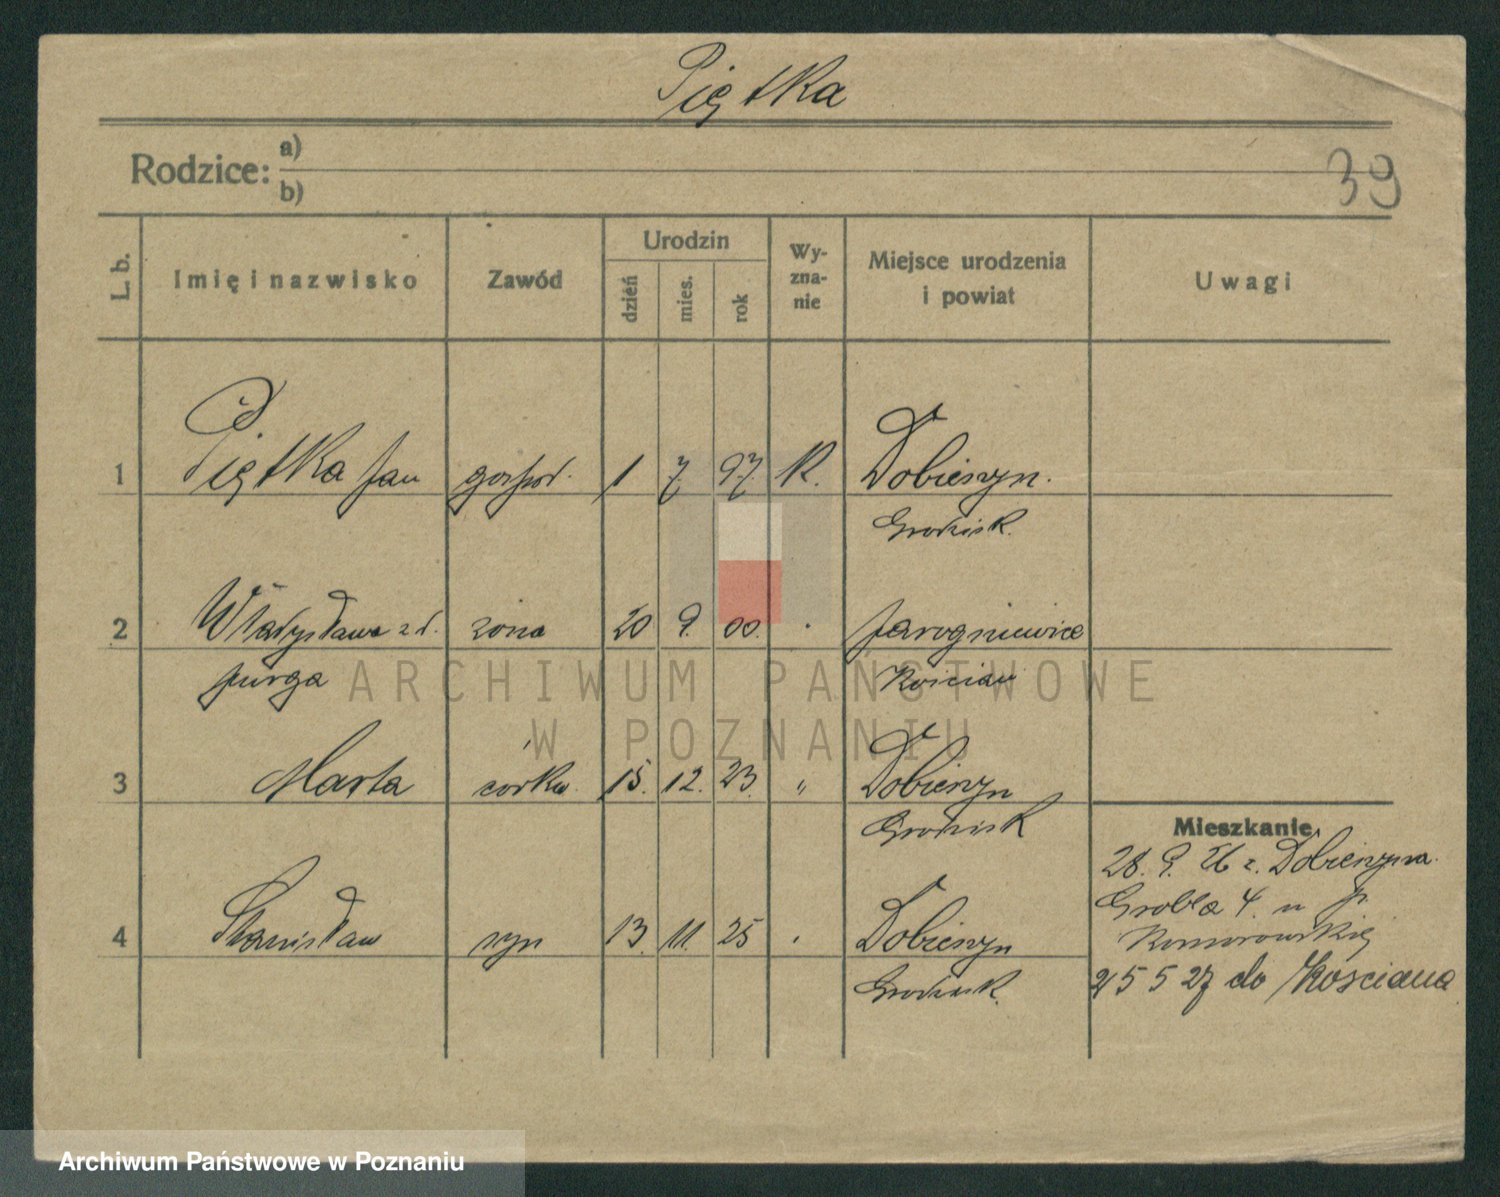 Piętka
Rodzice: a)
b)
39
L. b. Imię i nazwisko Zawód Urodzin dzień mies. rok Wy-zna-nie Miejsce urodzenia i powiat Uwagi
1 Piętka Jan gospod. 1 7. 97. K. Dobieszyn.
Grodzisk.
2 Władysława z d. żona 20 9. 00. " Jarogniewice
Jurga Kościan
3 Marta córka 15. 12. 23. " Dobieszyn
Grodzisk
Mieszkanie
28. 9. 26 z. Dobieszyna.
4 Stanisław syn 13. 11. 25 " Dobieszyn Grobla 4. u p.
Komorowskiej
Grodzisk. 25 5 27 do Kościana
ARCHIWUM PAŃSTWOWE
W POZNANIU
Archiwum Państwowe w Poznaniu